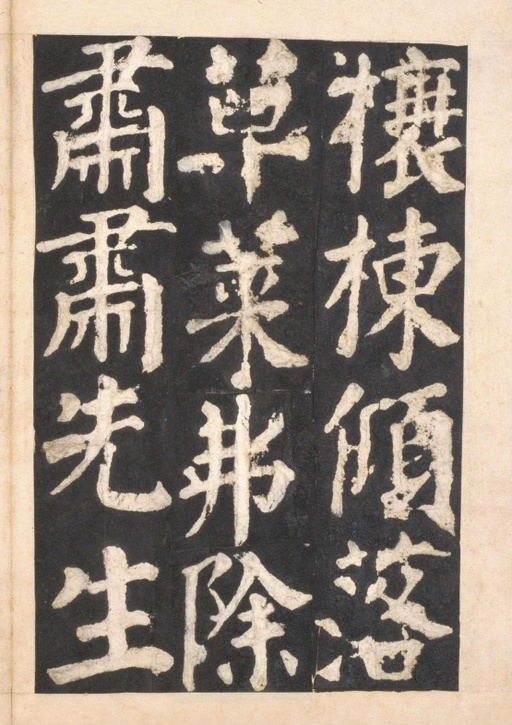 榱棟傾落
草萊弗除
肅肅先生